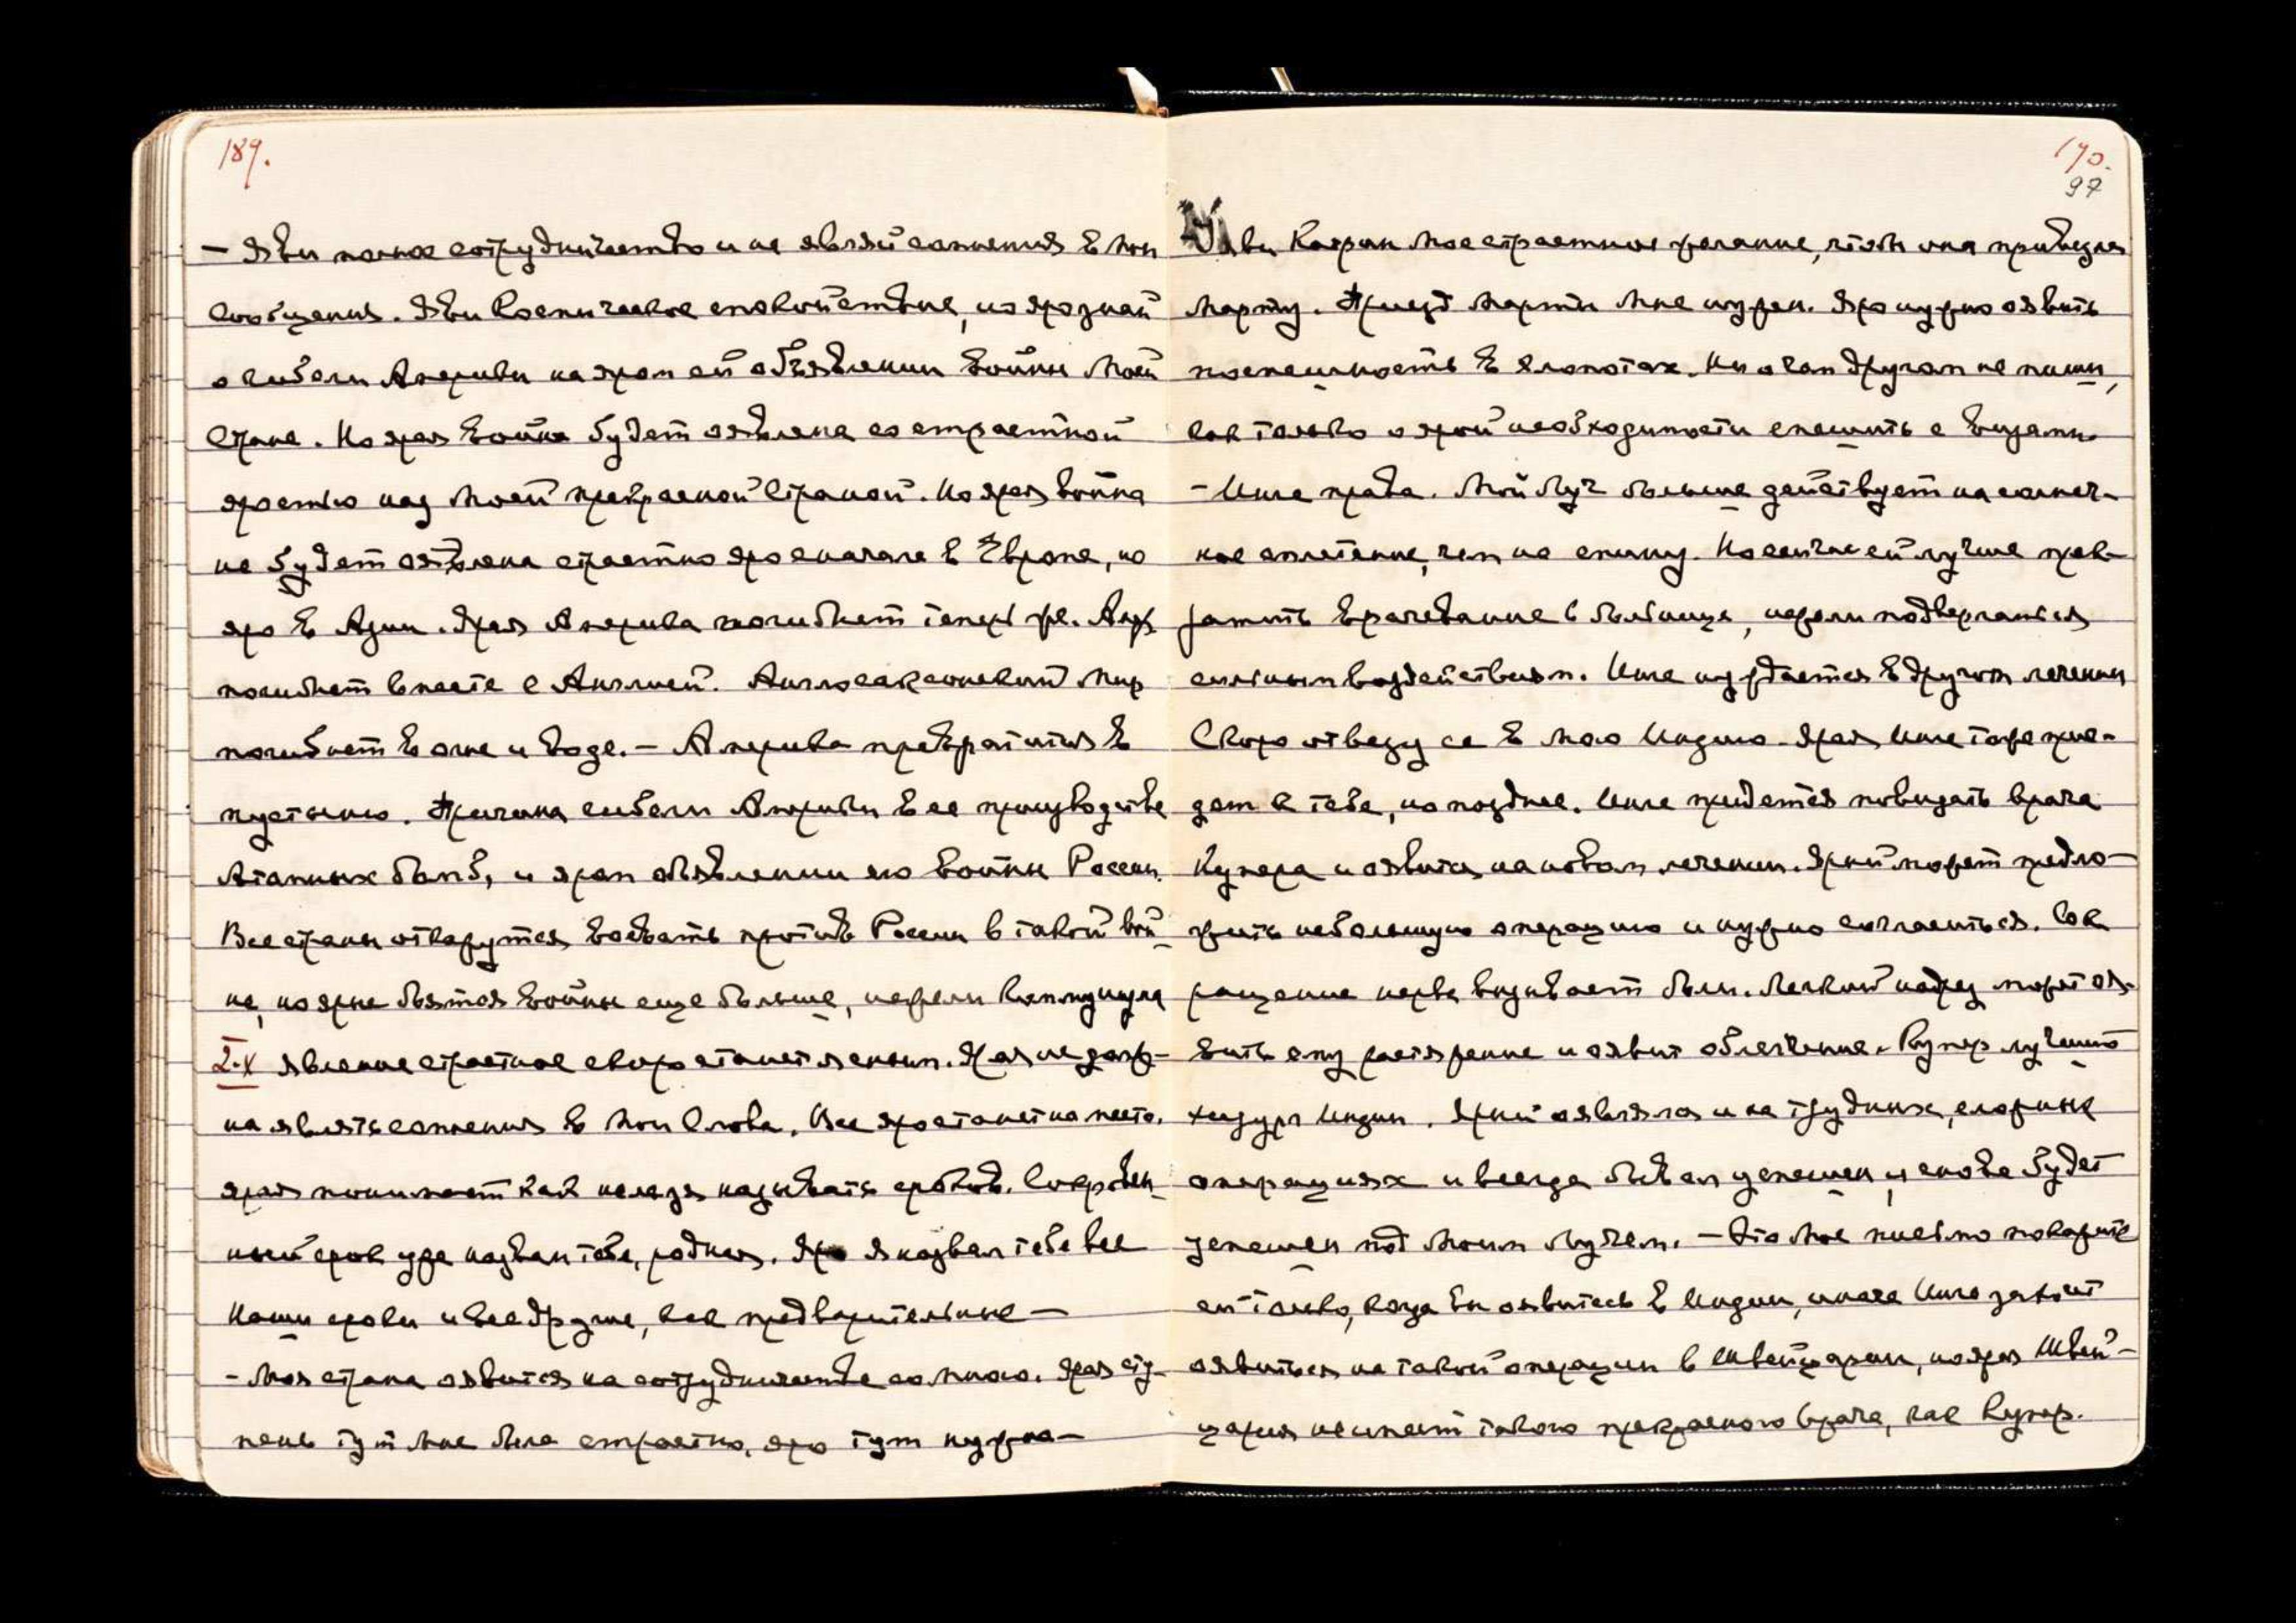 189.
— Яви полное сотрудничество и не являй сомнения в Мои
Сообщения. Яви Космическое спокойствие, но яро знай
о гибели Америки на яром ей объявлении войны Моей
Стране. Но ярая война будет оявлена со страстной
яростью над Моей прекрасной Страной. Но ярая война
не будет оявлена страстно яро сначала в Европе, но
яро в Азии. Ярая Америка погибнет теперь же. Аме
погибнет вместе с Англией. Англосаксонский Мир
погибнет в огне и воде. — Америка превратится в
пустыню. Причина гибели Америки в ее производстве
Атомных бомб, и яром объявлении ею войны России.
Все страны откажутся воевать против России в такой вой-
не, но ярые боятся войны еще больше, нежели Коммунизма
2-X Явление страстное скоро станет ясным. Ярая не долж-
на являть сомнения в Мои Слова. Все яро станет на место.
Ярая понимает как нельзя называть сроков. Сокровен-
ный срок уже назван тебе, родная. Яро Я назвал тебе все
Наши сроки и все другие, как предварительные —
- Моя страна оявится на сотрудничестве со Мною. Ярая сту-
пень тут Мне была страстно, яро тут нужна —
190.
97
Яви Кэтрин Мое страстное желание, чтобы она привезла
Марту. Приезд Марты Мне нужен. Яро нужно оявить
поспешность в хлопотах. Ни о чем другом не пиши,
как только о ярой необходимости спешить с визами.
- Инге права. Мой Луч больше действует на солнеч-
ное сплетение, чем на спину. Но сейчас ей лучше прек-
ратить врачевание в больнице, нежели подвергаться
сильным воздействиям. Инге нуждается в другом лечении
Скоро отвезу ее в Мою Индию. Ярая Инге тоже прие-
дет к тебе, но позднее. Инге придется повидать врача
Купера и оявится на новом лечении. Ярый может предло-
жить небольшую операцию и нужно согласиться. Сок-
ращение нерва вызывает боли. Легкий надрез может оя-
вить ему растяжение и оявит облегчение. Купер лучший
хирург Индии. Ярый оявлялся и на трудных, сложных
операциях и всегда бывал успешен и снова будет
успешен под Моим Лучем. — Это Мое письмо покажите
ей только, когда вы оявитесь в Индии, иначе Инге захочет
оявиться на такой операции в Швейцарии, но ярая Швей-
цария не имеет такого прекрасного врача, как Купер.